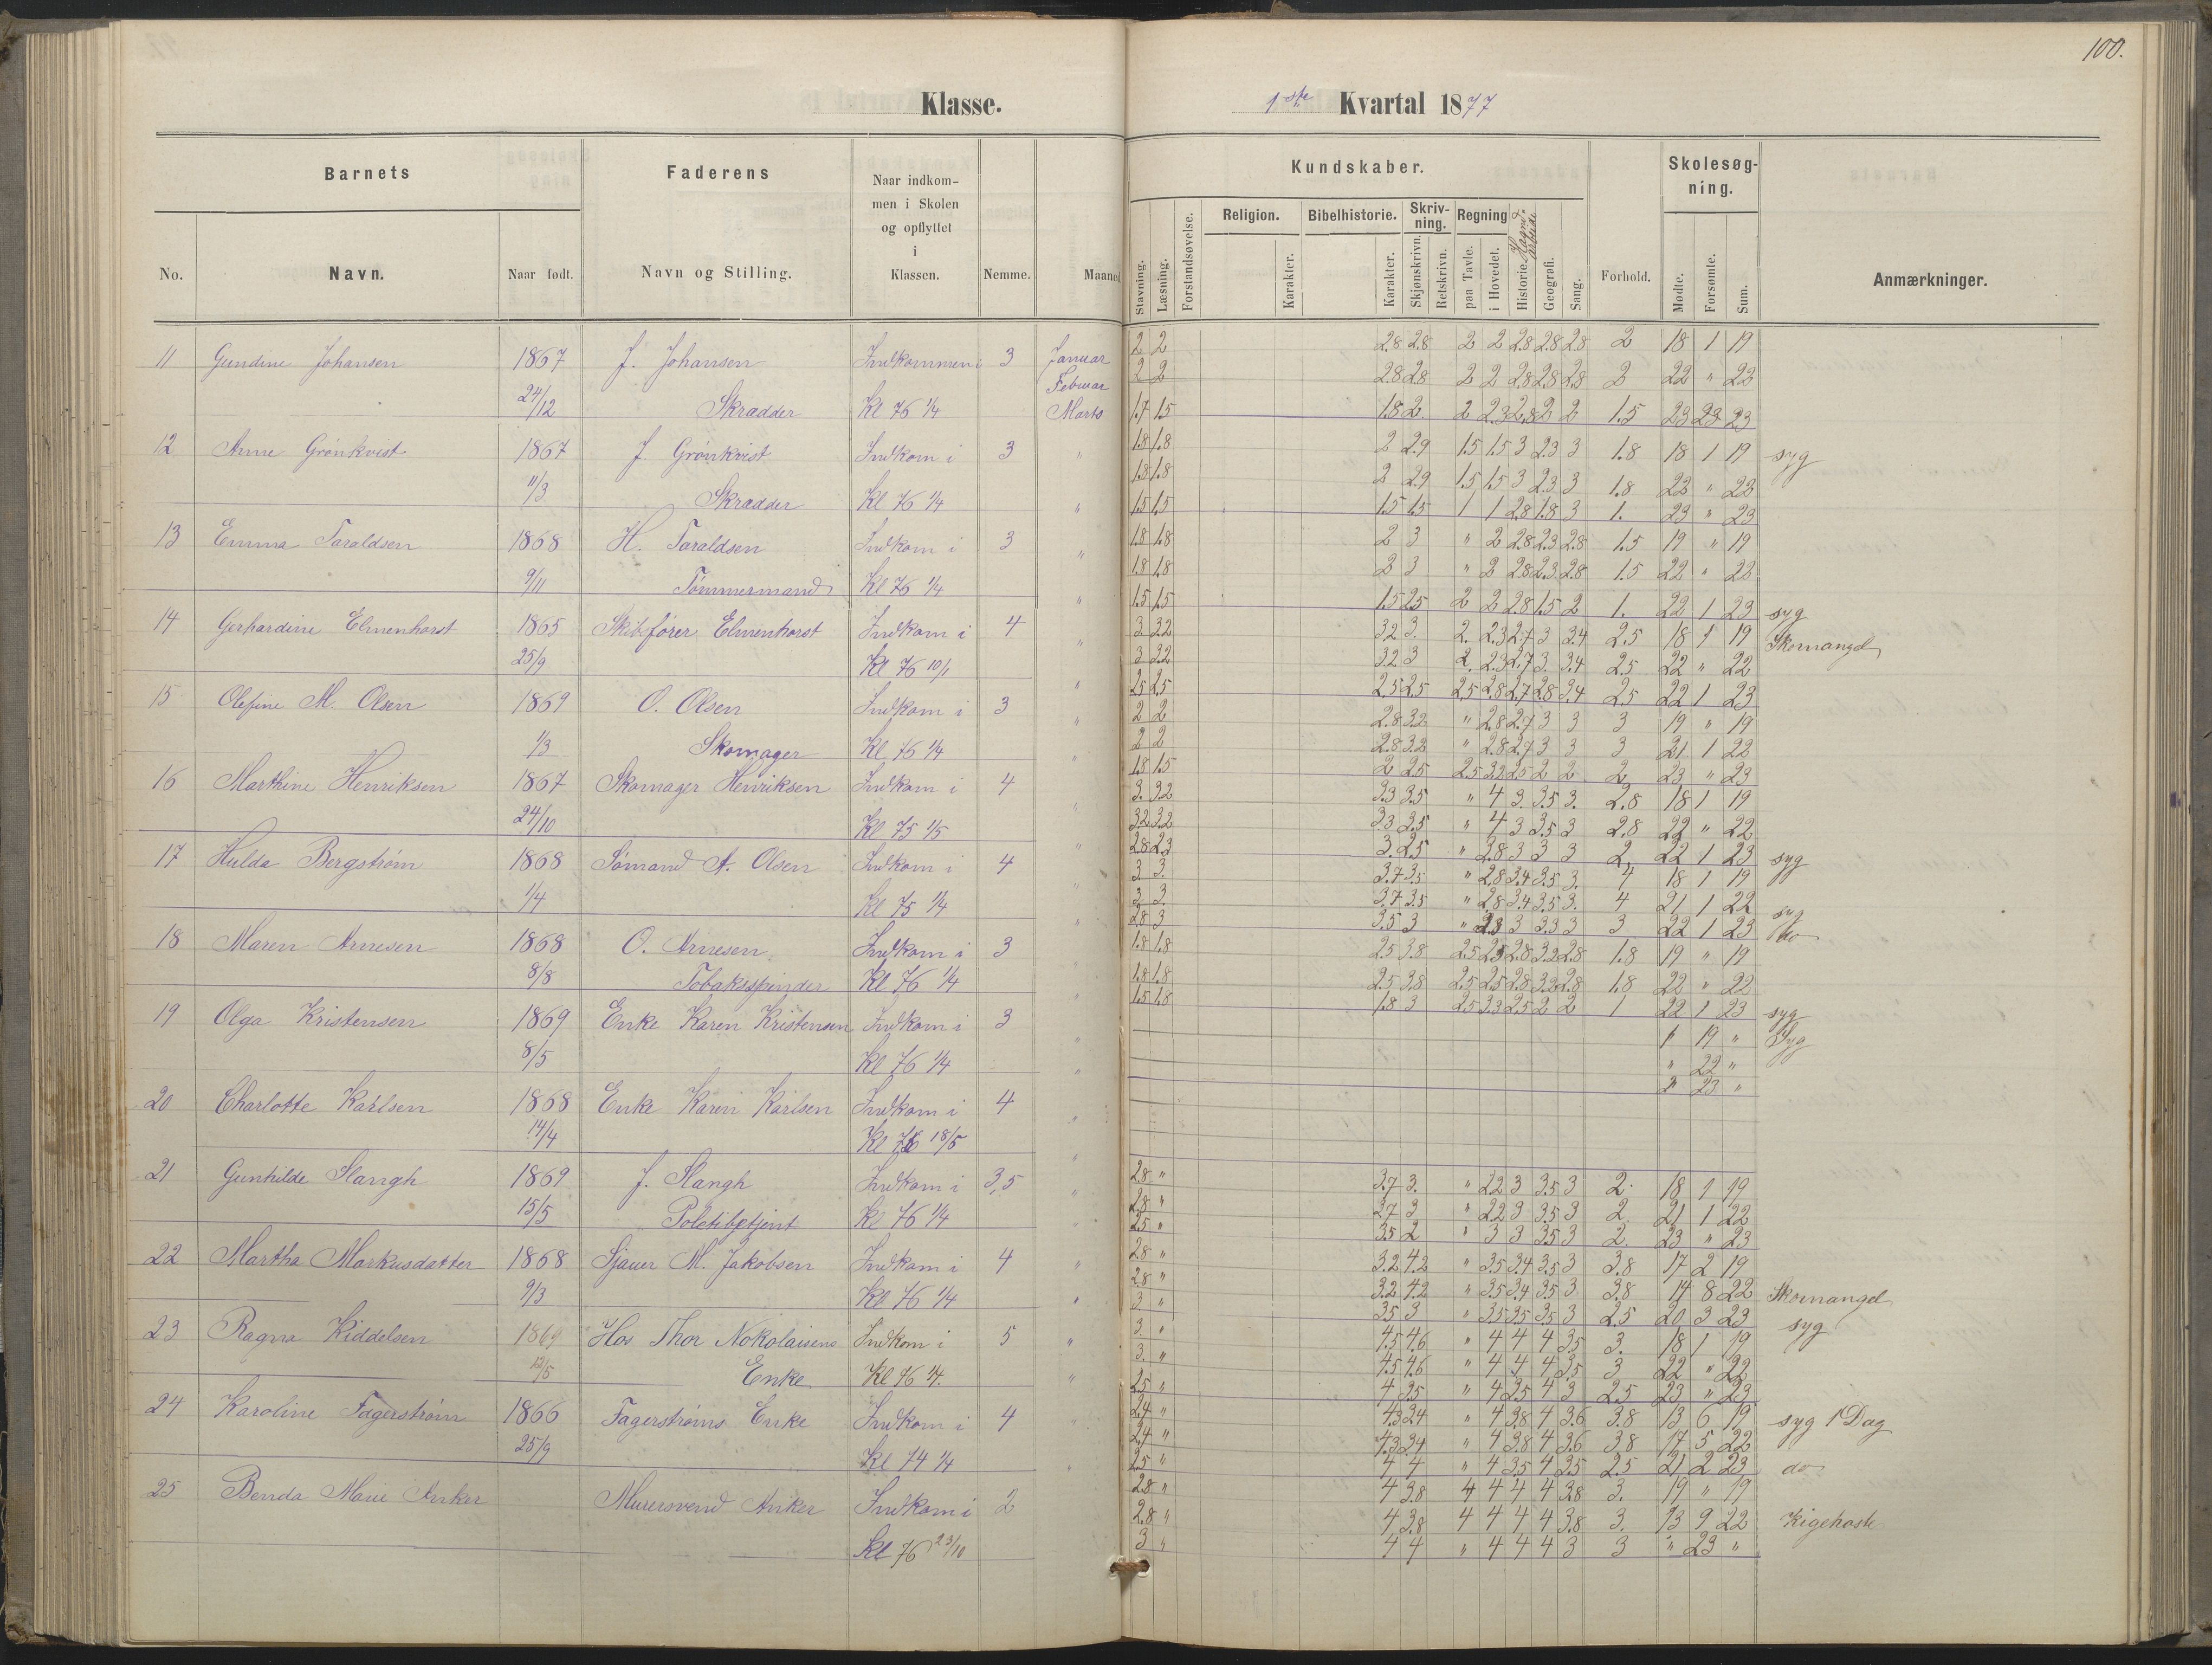 100.
Klasse.
1ste Kvartal 1877
Barnets
Faderens
Naar indkommen i Skolen og opflyttet i Klassen.
Nemme.
Maaned
No.
Navn.
Naar født.
Navn og Stilling.
Kundskaber.
Skolesøgning.
Stavning.
Læsning.
Forstandsøvelse.
Religion.
Karakter.
Bibelhistorie.
Karakter.
Skrivning.
Skjønskrivn.
Retskrivn.
Regning
paa Tavle.
i Hovedet.
Historie.
Haandarbeide
Geografi.
Sang.
Forhold.
Mødte.
Forsømte.
Sum.
Anmærkninger.
11 Gundine Johansen 1867 J. Johansen Indkommen i 3 Januar 2 2 2.8 2.8 2 2 2.8 2.8 2.8 2 18 1 19
24/12 Skrædder Kl 76 1/4 Februar 2 2 2.8 2.8 2 2 2.8 2.8 2.8 2 22 " 22
Marts 1.7 1.5 1.8 2 2 2.3 2.8 2 2 1.5 23 23 23
12 Anne Grönkvist 1867 J Grönkvist Indkom i 3 " 1.8 1.8 2 2.9 1.5 1.5 3 2.3 3 1.8 18 1 19 syg
11/3 Skrædder Kl 76 1/4 1.8 1.8 2 2.9 1.5 1.5 3 2.3 3 1.8 22 " 22
" 1.5 1.5 1.5 1.5 1 1 2.8 1.8 3 1. 23 " 23
13 Emma Taraldsen 1868 H. Taraldsen Indkom i 3 " 1.8 1.8 2 3 " 2 2.8 2.3 2.8 1.5 19 " 19
9/11 Tømmermand Kl 76 1/4 1.8 1.8 2 3 " 2 2.8 2.3 2.8 1.5 22 " 22
" 1.5 1.5 1.5 2.5 2 2 2.8 1.5 2 1. 22 1 23 syg
14 Gerhardine Elmenhorst 1865 Skibsfører Elmenhorst Indkom i 4 " 3 3.2 3.2 3. 2. 2.3 2.7 3 3.4 2.5 18 1 19 Skomangel
25/9 Kl 76 10/1 3 3.2 3.2 3 2. 2.3 2.7 3. 3.4 2.5 22 " 22
" 2.5 2.5 2.5 2.5 2.5 2.8 2.7 2.8 3.4 2.5 22 1 23
15 Olefine M. Olsen 1869 O. Olsen Indkom i 3 " 2 2 2.8 3.2 " 2.8 2.7 3 3 3 19 " 19
1/3 Skomager Kl 76 1/4 2 2 2.8 3.2 " 2.8 2.7 3 3 3 21 1 22
" 1.8 1.5 2 2.5 2.5 3.2 2.5 2 2 2 23 " 23
16 Marthine Henriksen 1867 Skomager Henriksen Indkom i 4 " 3. 3.2 3.3 3.5 " 4 3. 3.5 3. 2.8 18 1 19
24/10 Kl 75 1/5 3.2 3.2 3.3 3.5 " 4 3 3.5 3 2.8 22 " 22
" 2.8 2.3 3. 2.5 " 3.8 3 3 3 2. 22 1 23 syg
17 Hulda Bergström 1868 Sømand A. Olsen Indkom i 4 " 3 3. 3.7 3.5 " 2.8 3.4 3.5 3. 4 18 1 19
1/4 Kl 75 1/4 3 3. 3.7 3.5 " 2.8 3.4 3.5 3. 4 21 1 22 syg
" 2.8 3 3.5 3 3 3.3 3 3 22 1 23 do
18 Maren Arnesen 1868 O. Arnesen Indkom i 3 1.8 1.8 2.5 3.8 2.5 2.5 2.8 3.2 2.8 1.8 19 " 19
8/8 Tobaksspinder Kl 76 1/4 1.8 1.8 2.5 3.8 2.5 2.5 2.8 3.2 2.8 1.8 22 " 22
1.5 1.8 1.8 3 2.5 3.3 2.5 2 2 1 22 1 23 syg
19 Olga Kristensen 1869 Enke Karen Kristensen Indkom i 3 " 19 " Syg
8/5 Kl 76 1/4 " 22 "
" 23 "
20 Charlotte Karlsen 1868 Enke Karen Karlsen Indkom i 4
14/4 Kl 76 18/5
21 Gunhilde Slangh 1869 J. Slangh Indkom i 3,5 2.8 " 3.7 3. " 2.2 3 3.5 3 2. 18 1 19
15/5 Politibetjent Kl 76 1/4 2.8 " 3.7 3 " 2.2 3 3.5 3 2. 21 1 22
2.5 " 3.5 2 " 3 3 3.5 3 2. 23 " 23
22 Martha Markusdatter 1868 Sjauer M. Jakobsen Indkom i 4 " 2.8 " 3.2 4.2 " 3.5 3.4 3.5 3 3.8 17 2 19
9/3 Kl 76 1/4 2.8 " 3.2 4.2 " 3.5 3.4 3.5 3 3.8 14 8 22 Skomangel
" 3 " 3.5 3 " 3.5 3.5 3.5 3 2.5 20 3 23 syg
23 Ragna Kiddelsen 1869 Hos Thor Nokolaisens Indkom i 5 " 3. " 4.5 4.6 " 4 4 4 3.5 3. 18 1 19
12/5 Enke Kl 76 1/4. " 3. " 4.5 4.6 " 4 4 4 3.5 3 22 " 22
2.5 " 4 3.5 " 4 3.5 4 3 2.5 23 " 23
24 Karoline Fagerström 1866 Fagerströms Enke Indkom i 4 2.4 " 4.3 3.4 " 4 3.8 4 3.6 3.8 13 6 19 syg 1 Dag
25/9 Kl 74 1/4 2.4 " 4.3 3.4 " 4 3.8 4 3.6 3.8 17 5 22
2.5 " 4 4 " 4 3.5 4 3.5 2.5 21 2 23 do
25 Benda Marie Anker Murersvend Anker Indkom i 2 2.8 " 4 3.8 4 4 4 4 3.8 3. 19 " 19
Kl 76 23/10 2.8 " 4 3.8 4 4 4 4 3.8 3. 13 9 22 Kigehoste
3 " 4 4 " 4 4 4 3 3 " 23 "